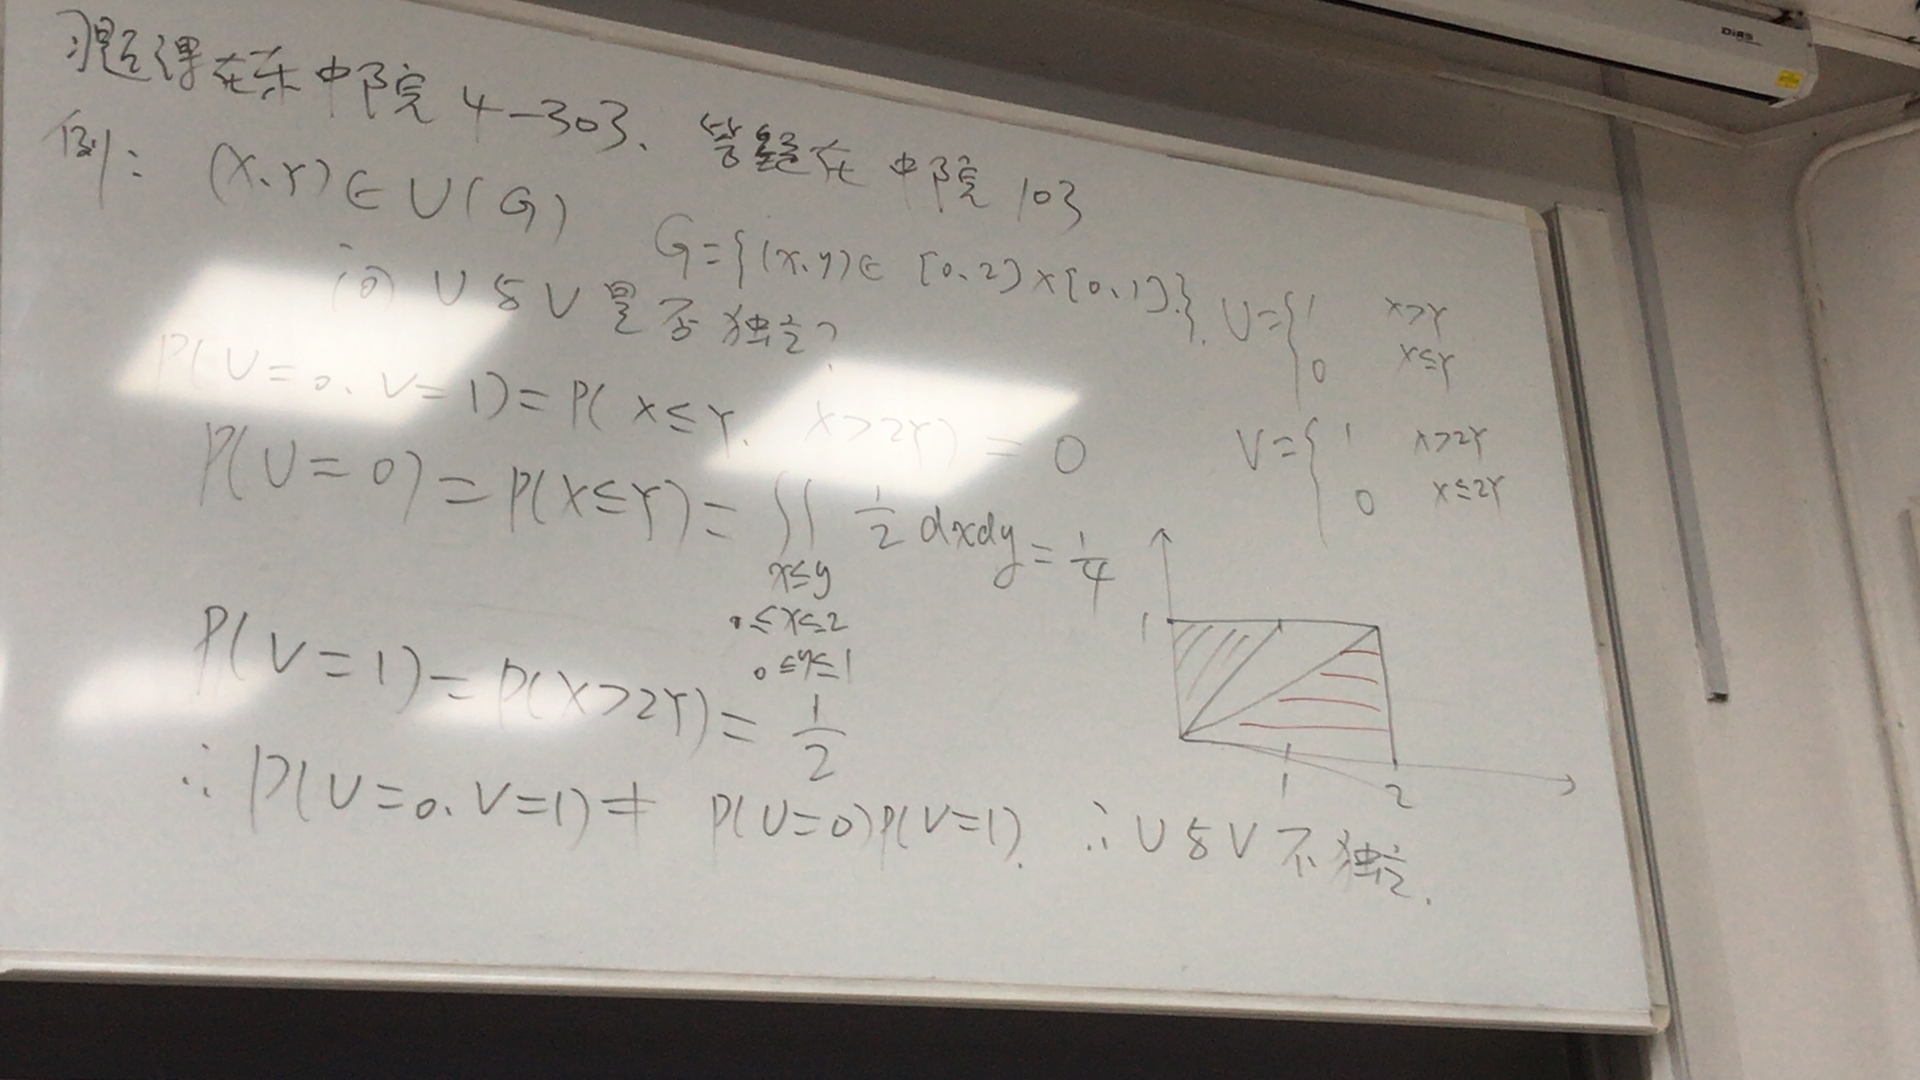 习题课在东中院 4-303、答疑在中院 103
例: (X.Y)∈U(G) G={(x.y)∈[0.2]×[0.1]}. U={1 X>Y
0 X≤Y
问 U与V是否独立?
V={1 X>2Y
0 X≤2Y
P(U=0.V=1)=P(X≤Y. X>2Y)=0
P(U=0)=P(X≤Y)=∬ 1/2 dxdy=1/4
x≤y
0≤x≤2
0≤y≤1
P(V=1)=P(X>2Y)=1/2
∴P(U=0.V=1)≠P(U=0)P(V=1). ∴U与V不独立.
1
1 2